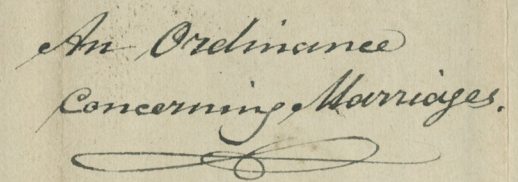 An Ordinance
Concerning Marriages.